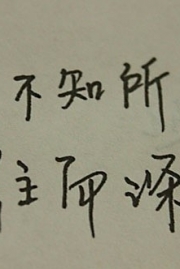 不知所
往而深